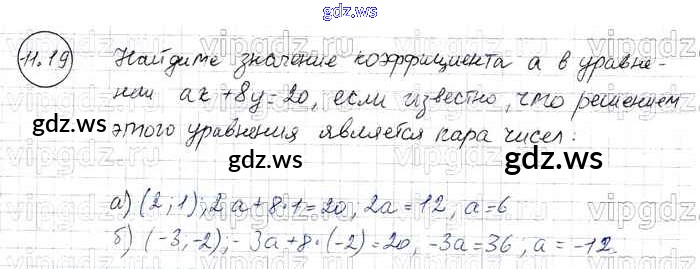 gdz.ws
11.19 Найдите значение коэффициента a в уравне-
нии ax+8y=20, если известно, что решением
этого уравнения является пара чисел:
gdz.ws gdz.ws
а) (2; 1); 2a+8·1=20, 2a=12, a=6
б) (-3; -2); -3a+8·(-2)=20, -3a=36, a=-12.
gdz.ws gdz.ws